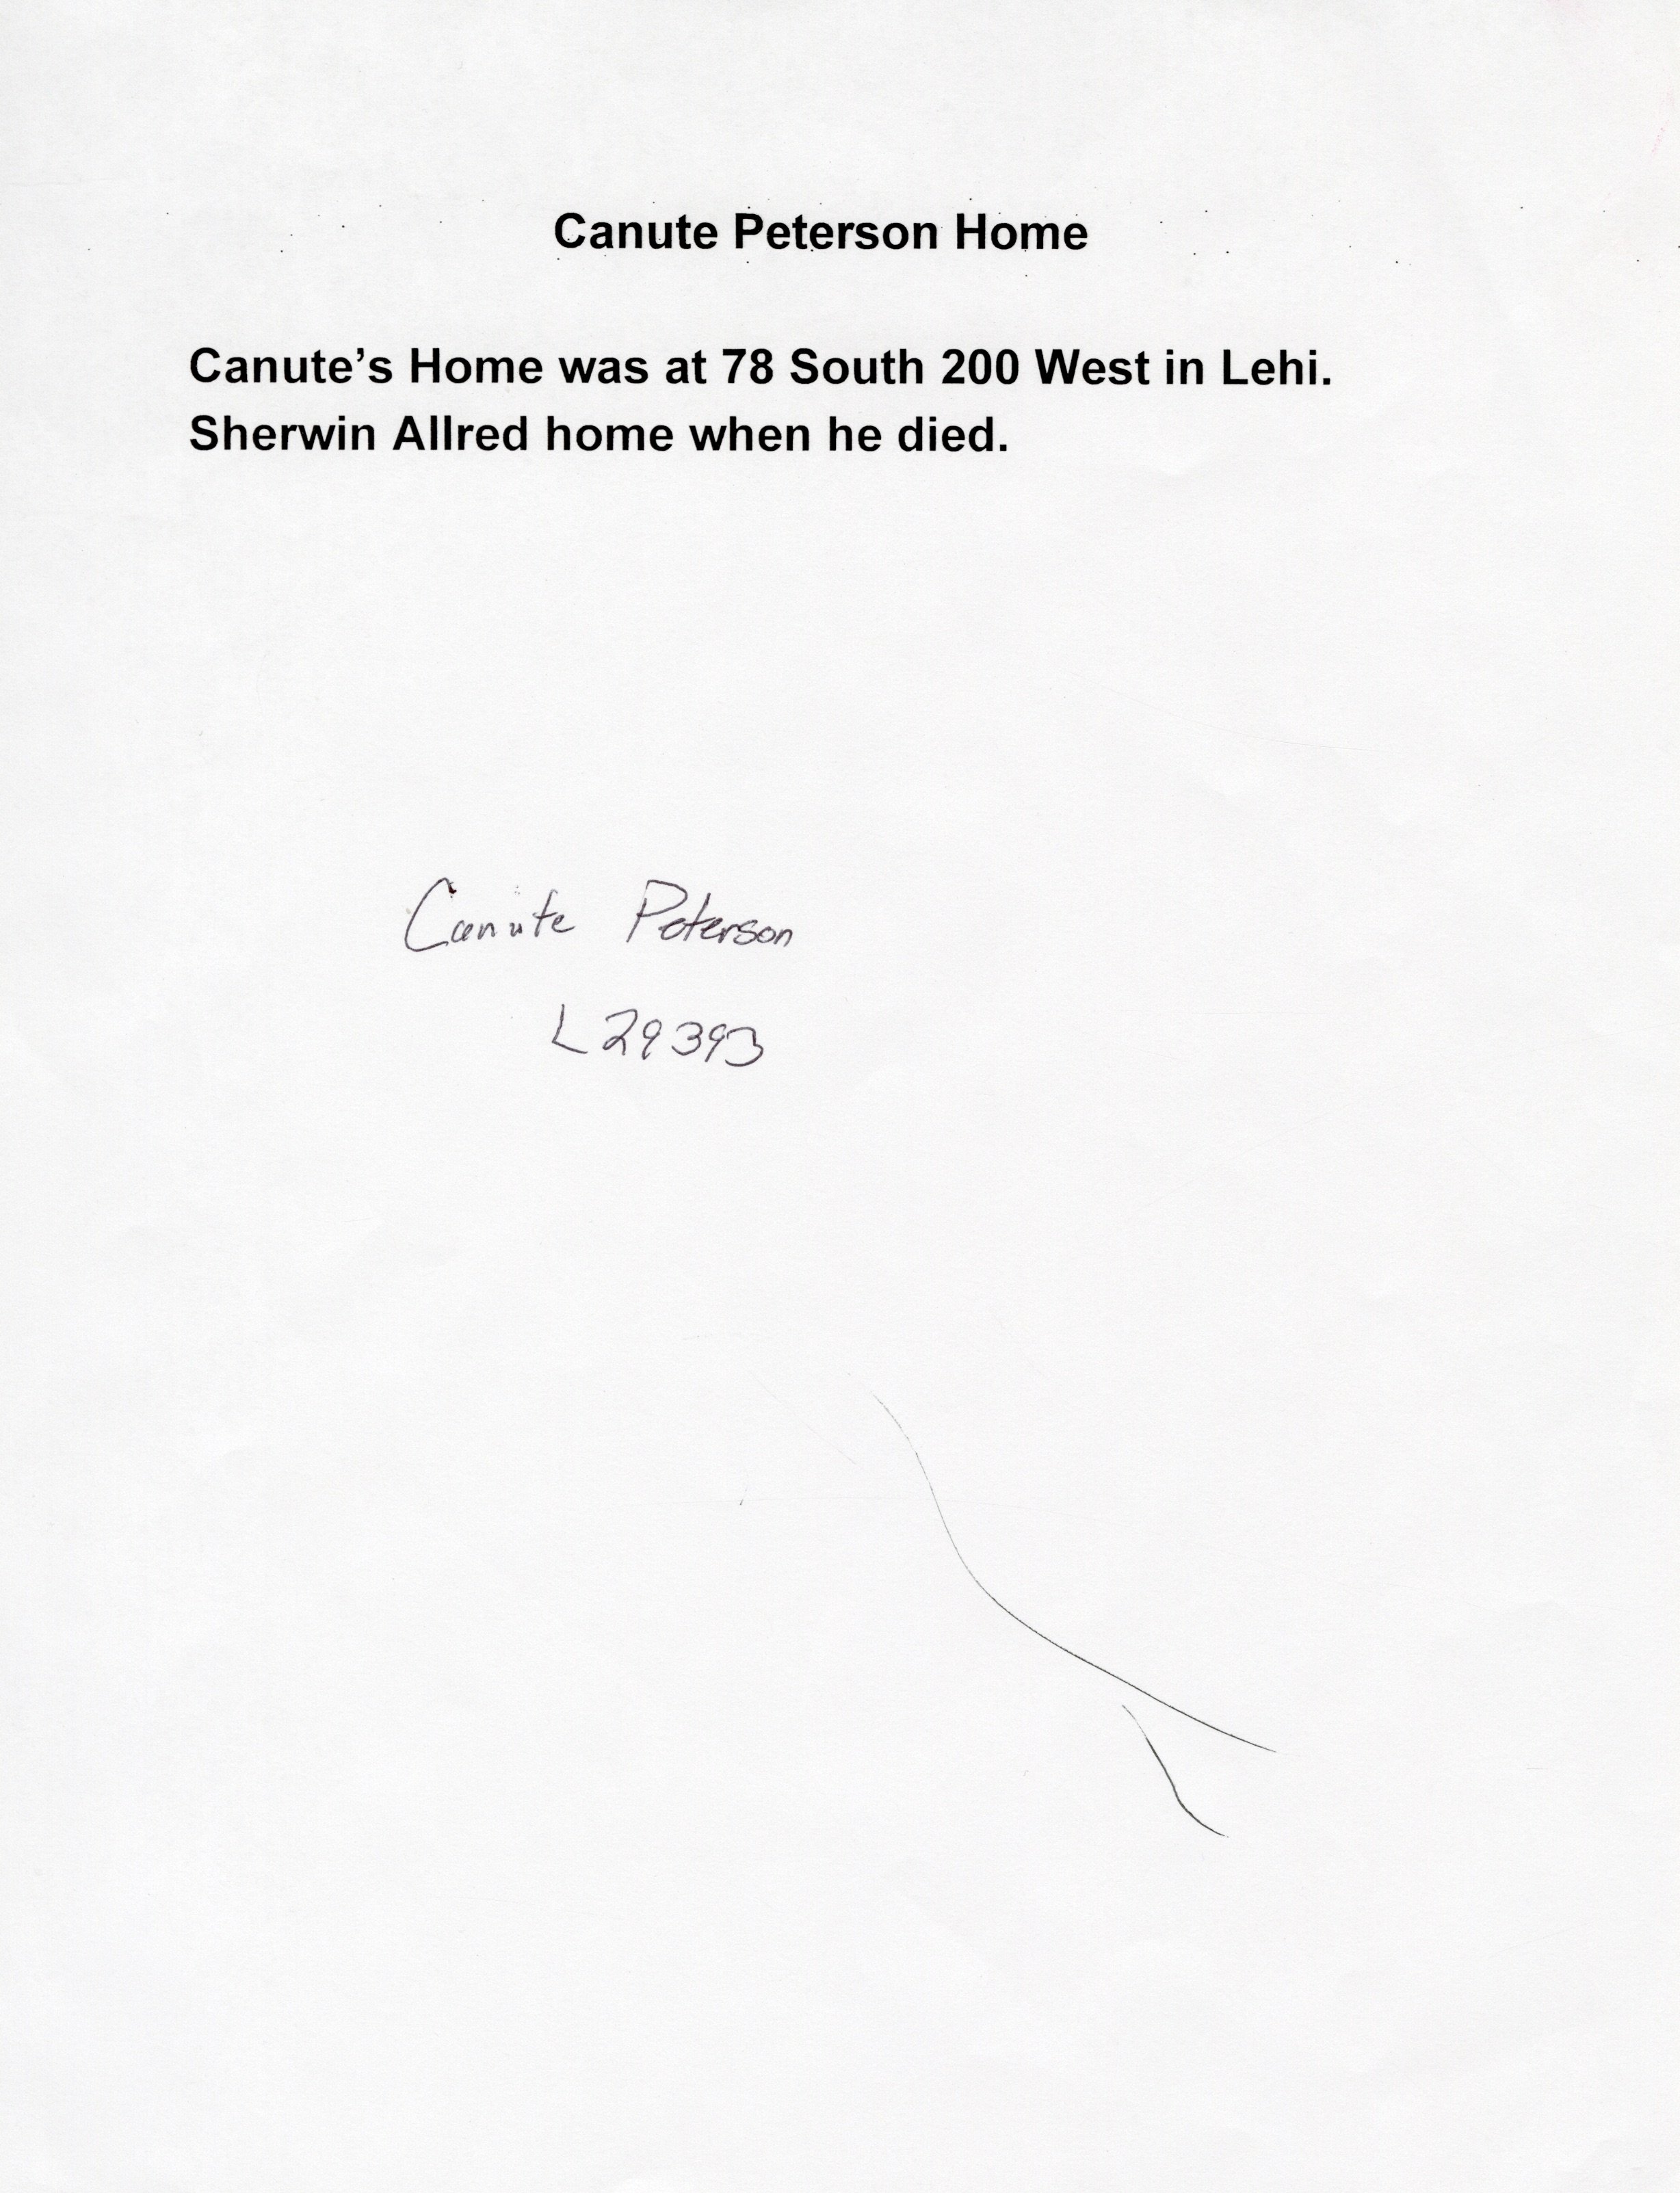 Canute Peterson Home
Canute’s Home was at 78 South 200 West in Lehi.
Sherwin Allred home when he died.
Canute Peterson
L29393